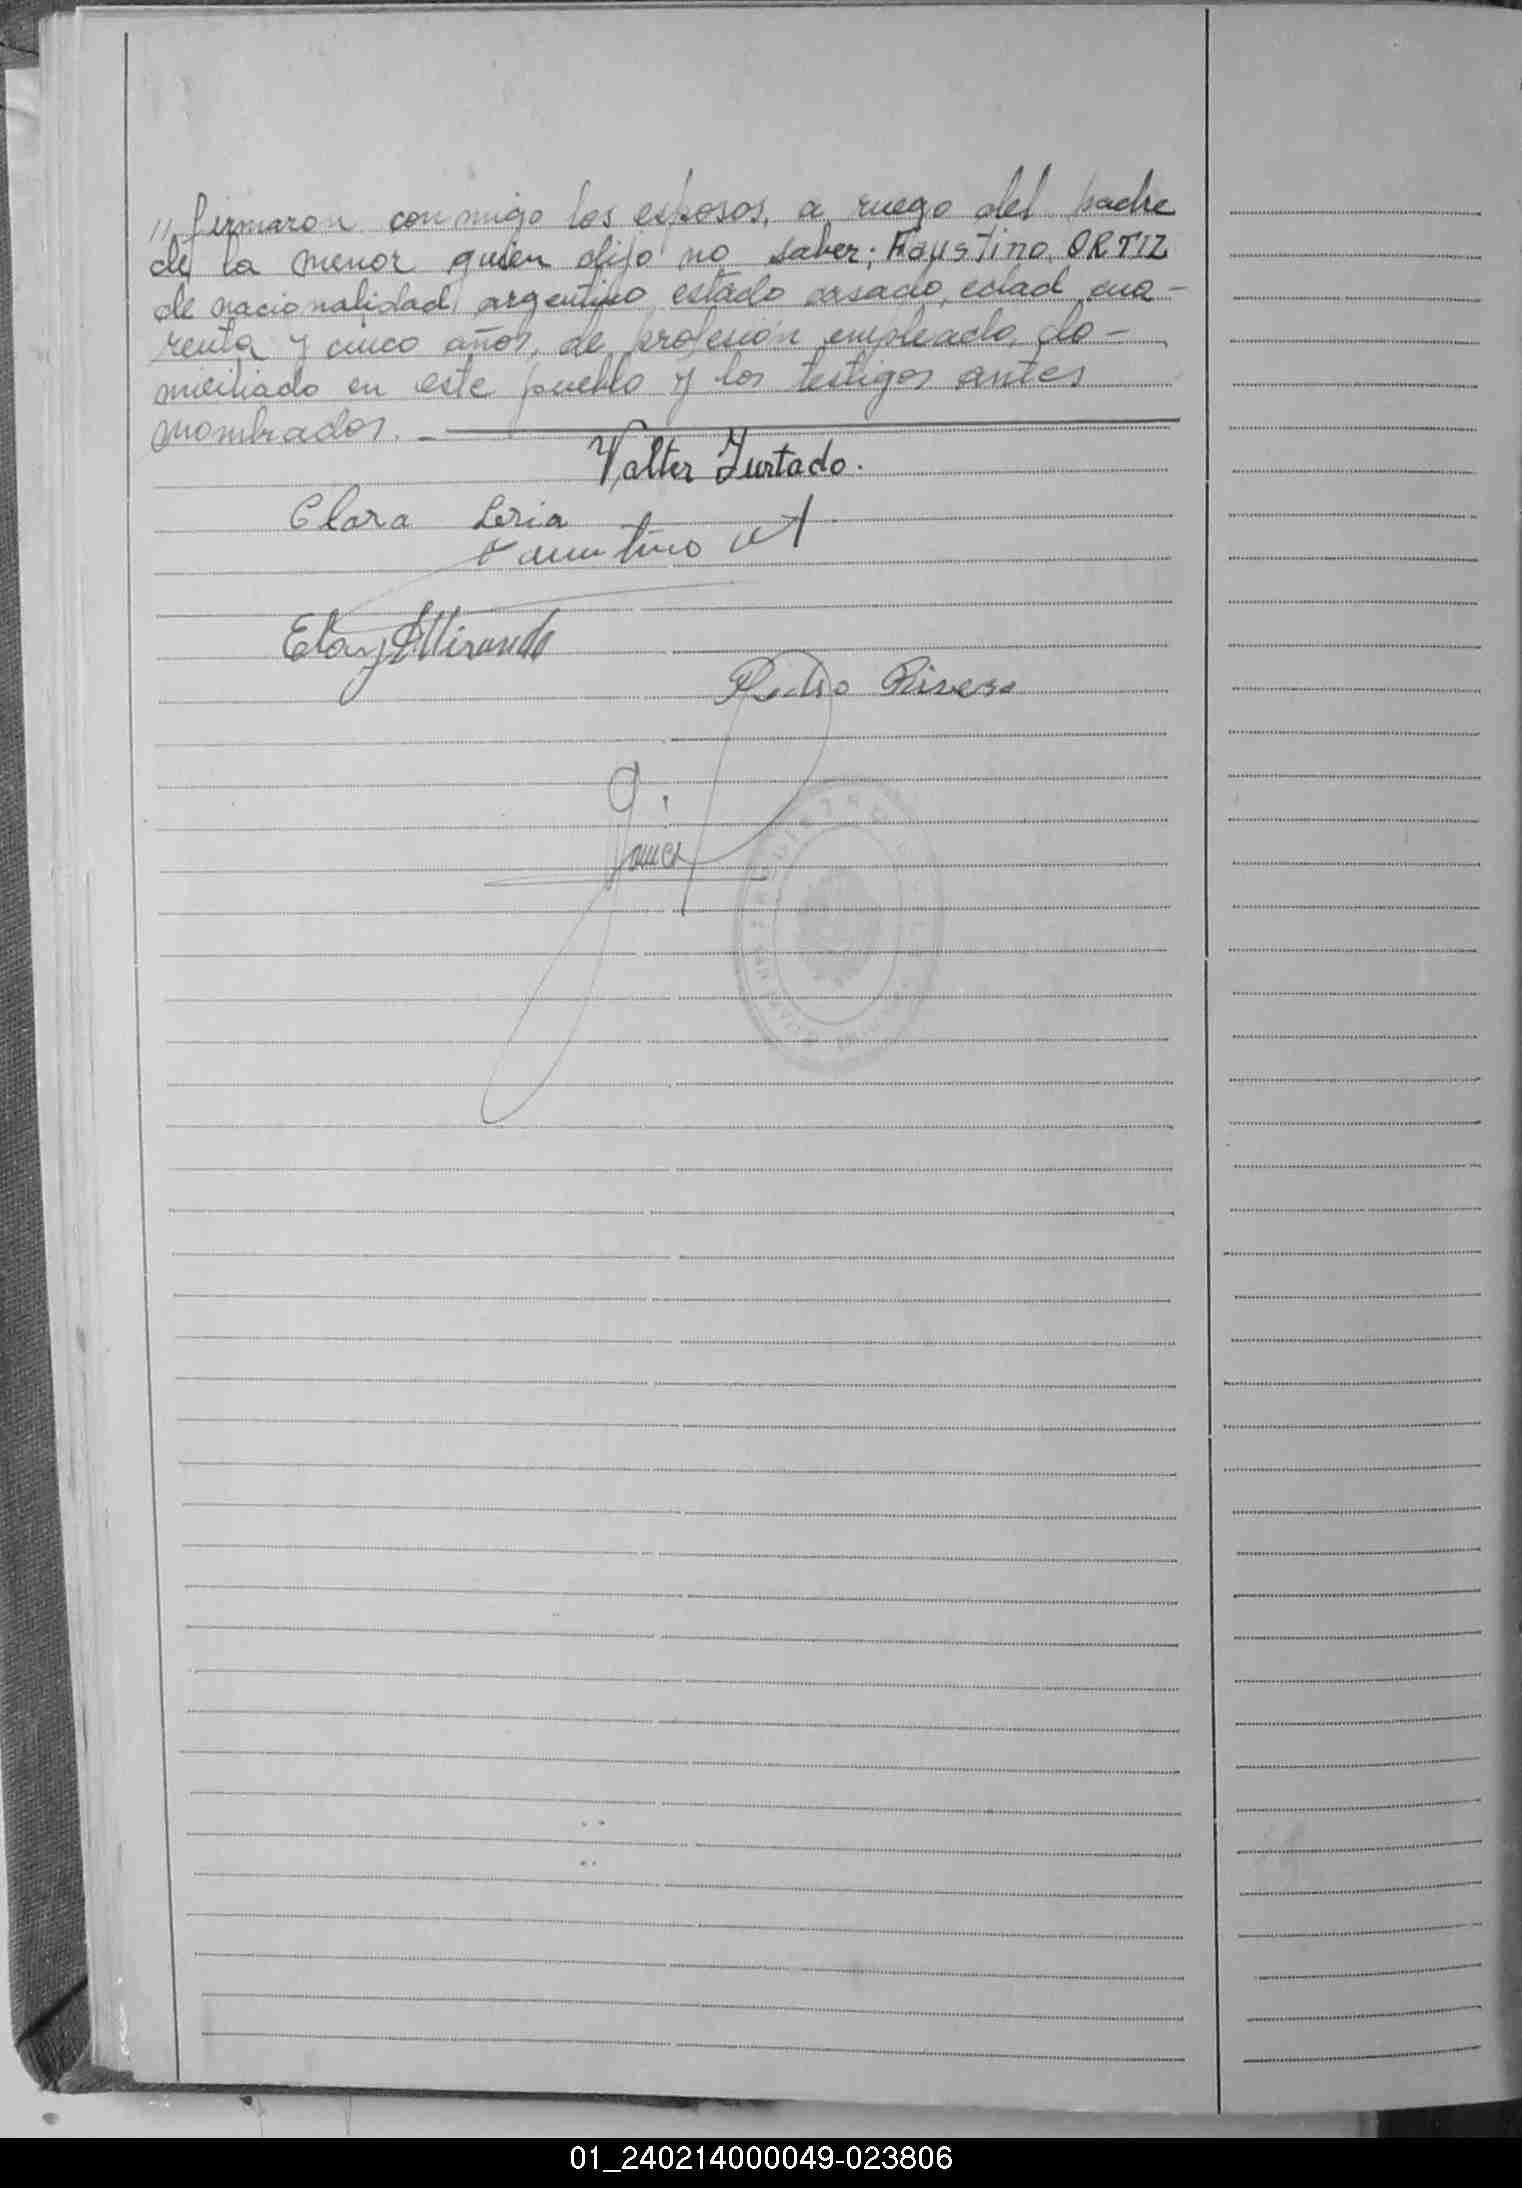 // firmaron conmigo los esposos, a ruego del padre
de la menor quien dijo no saber; Faustino ORTIZ
de nacionalidad argentino estado casado, edad cua-
renta y cinco años, de profesión empleado, do-
miciliado en este pueblo y los testigos antes
nombrados. -
Valter Furtado.
Clara Leria
Faustino
Eloy Miranda
Pedro Rivero
01_240214000049-023806